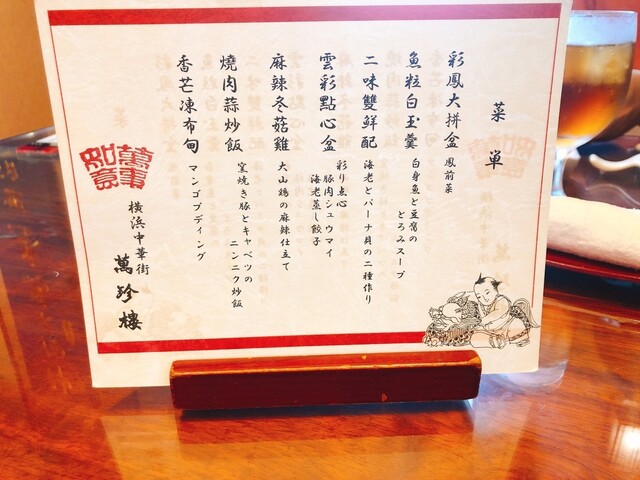 菜單
彩鳳大拼盆 鳳前菜
魚粒白玉羹 白身魚と豆腐の
とろみスープ
二味雙鮮配 海老とパーナ貝の二種作り
雲彩點心盆 彩り点心
豚肉シュウマイ
海老蒸し餃子
麻辣冬菇雞 大山鶏の麻辣仕立て
燒肉蒜炒飯 窯焼き豚とキャベツの
ニンニク炒飯
香芒凍布甸 マンゴプディング
萬事
如意
横浜中華街
萬珍樓